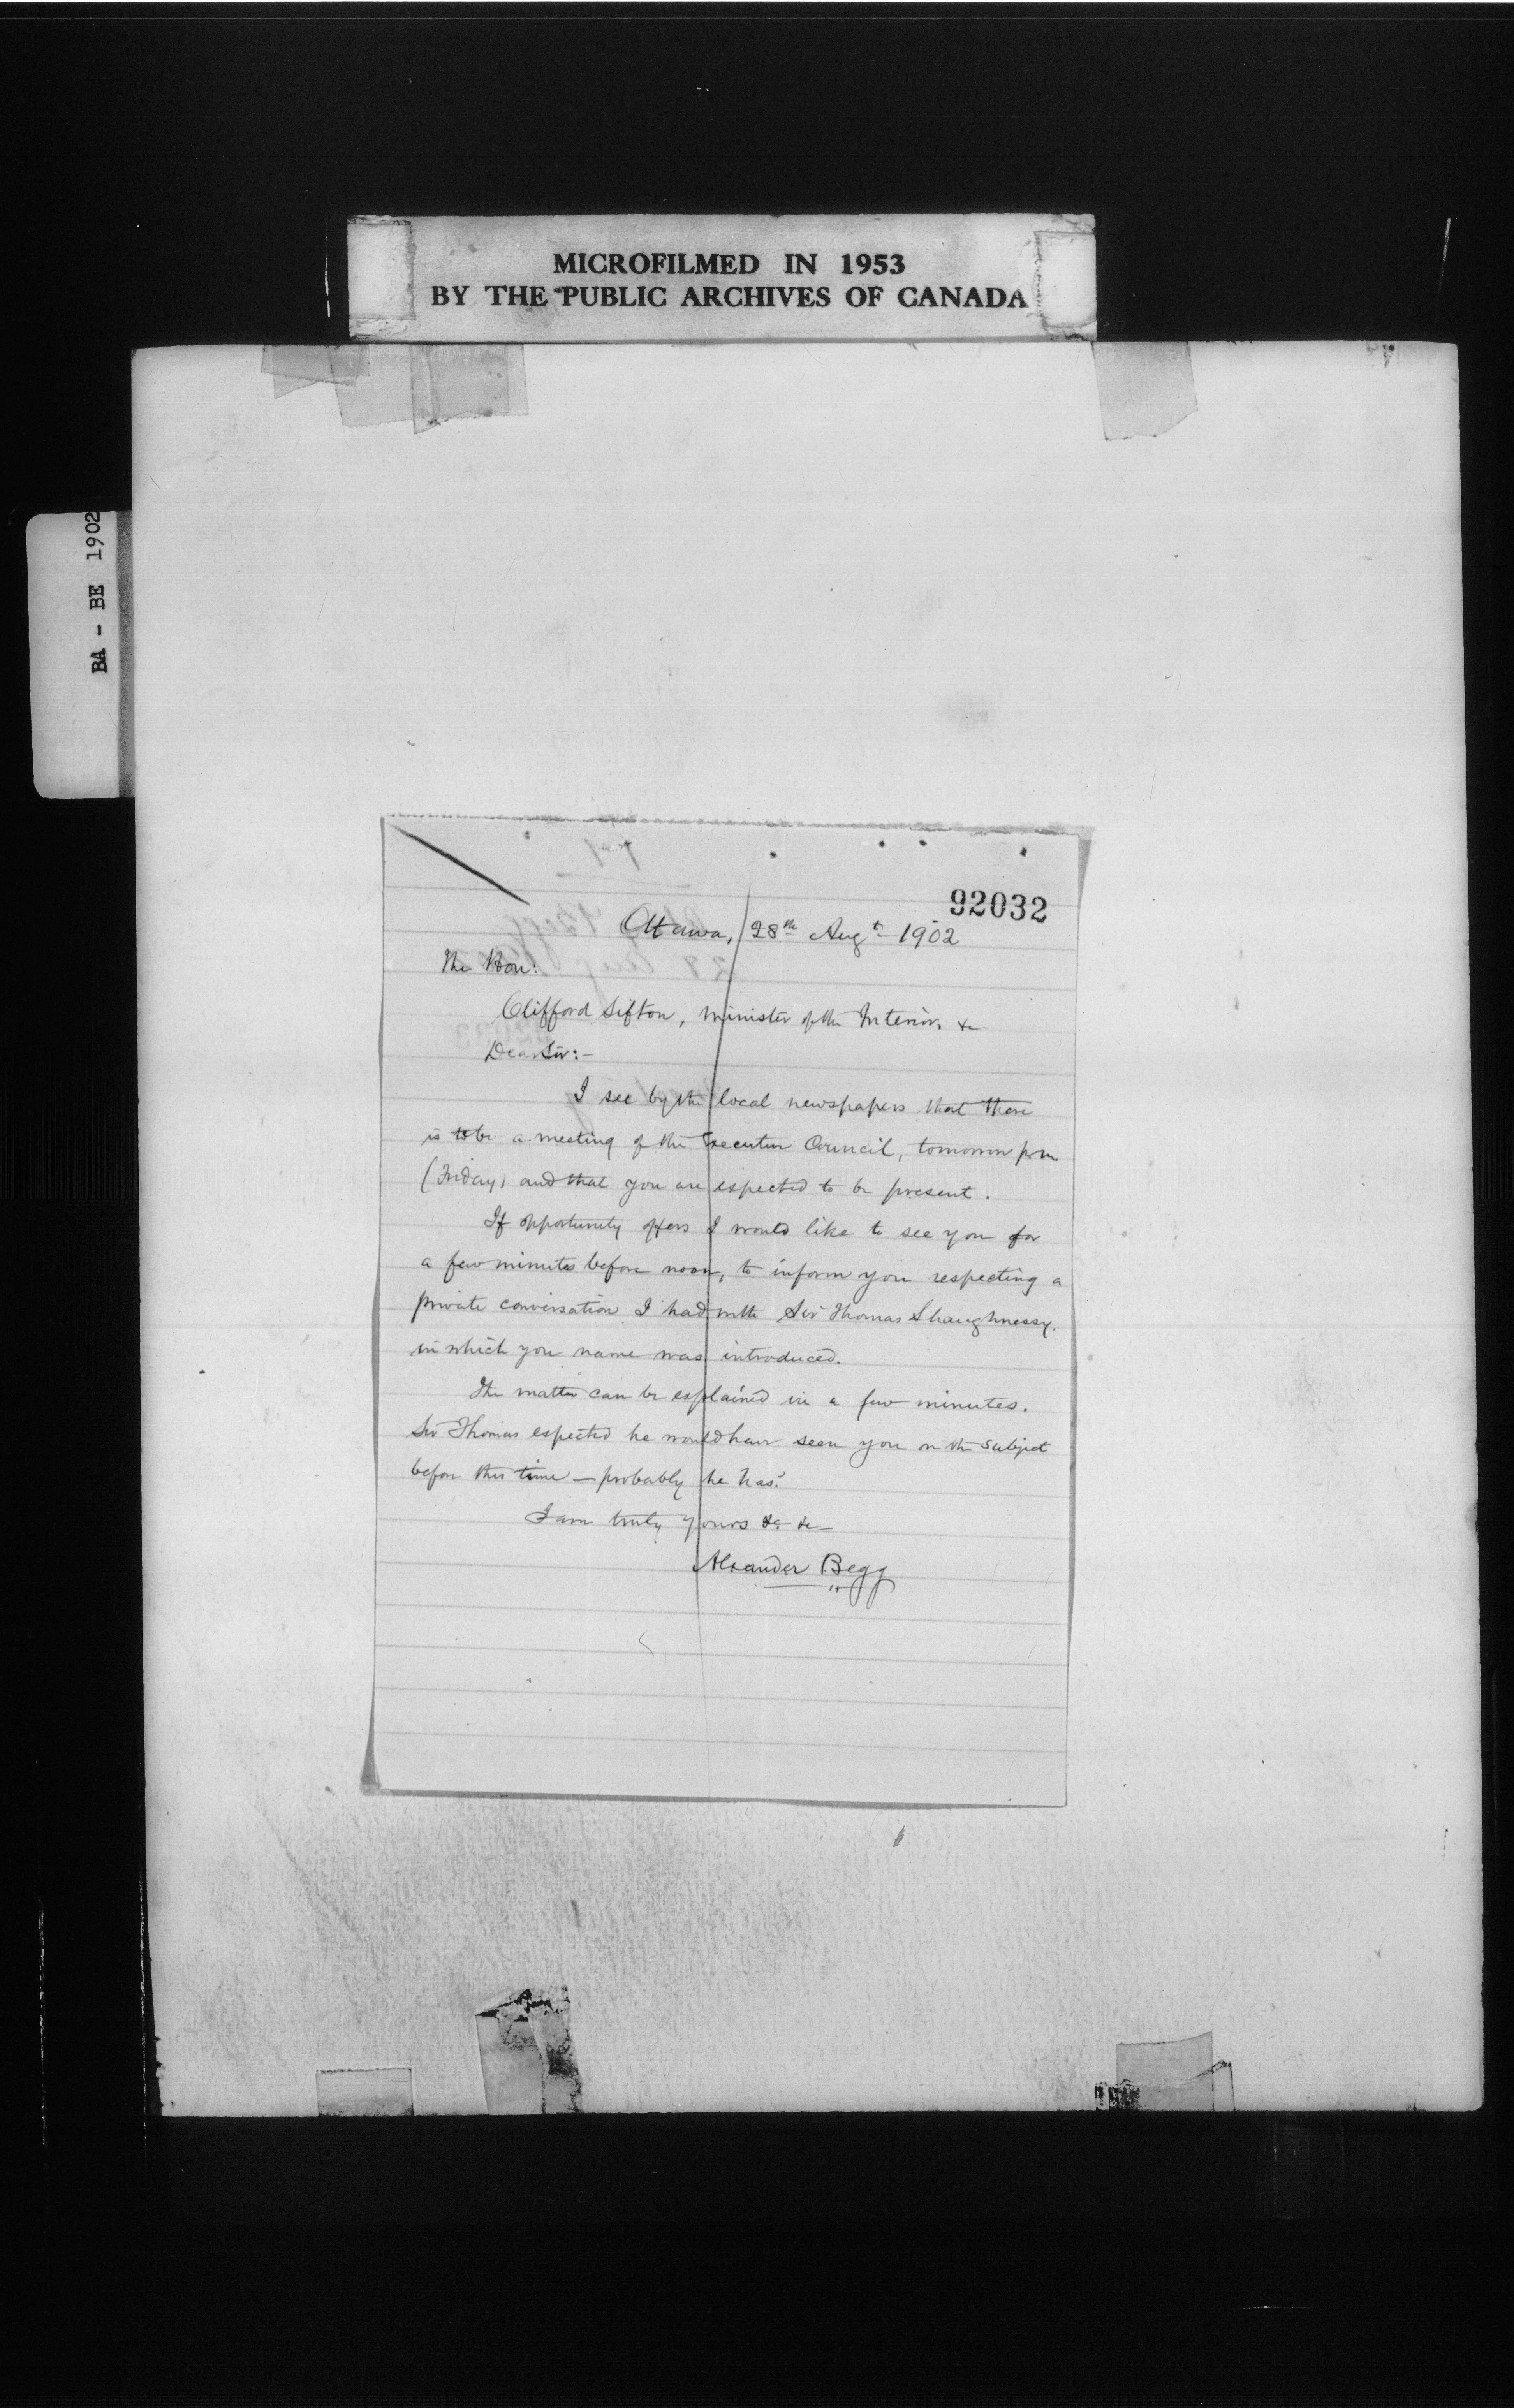 MICROFILMED IN 1953
BY THE PUBLIC ARCHIVES OF CANADA
BA - BE 1902
92032
Ottawa, 28th Augt 1902
The Hon:
Clifford Sifton, Minister of the Interior, &c
Dear Sir:-
I see by the local newspapers that there
is to be a meeting of the Executive Council, tomorrow
(Friday) and that you are expected to be present.
If opportunity offers I would like to see you for
a few minutes before noon, to inform you respecting a
private conversation I had with Sir Thomas Shaughnessy,
in which you name was introduced.
The matter can be explained in a few minutes.
Sir Thomas expected he would have seen you on the subject
before this time - probably he has.
I am truly yours &c &c
Alexander Begg